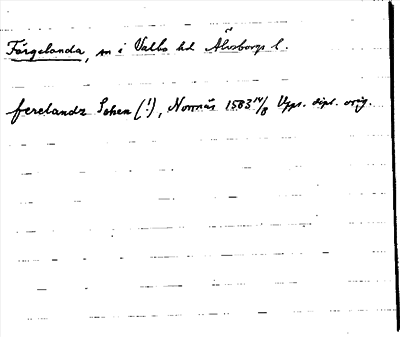 Färgelanda, sn i Valbo hd Älvsborgs l.
ferelandz Soken (!), Norrnäs 1583 14/8 Upps. dipl. orig.